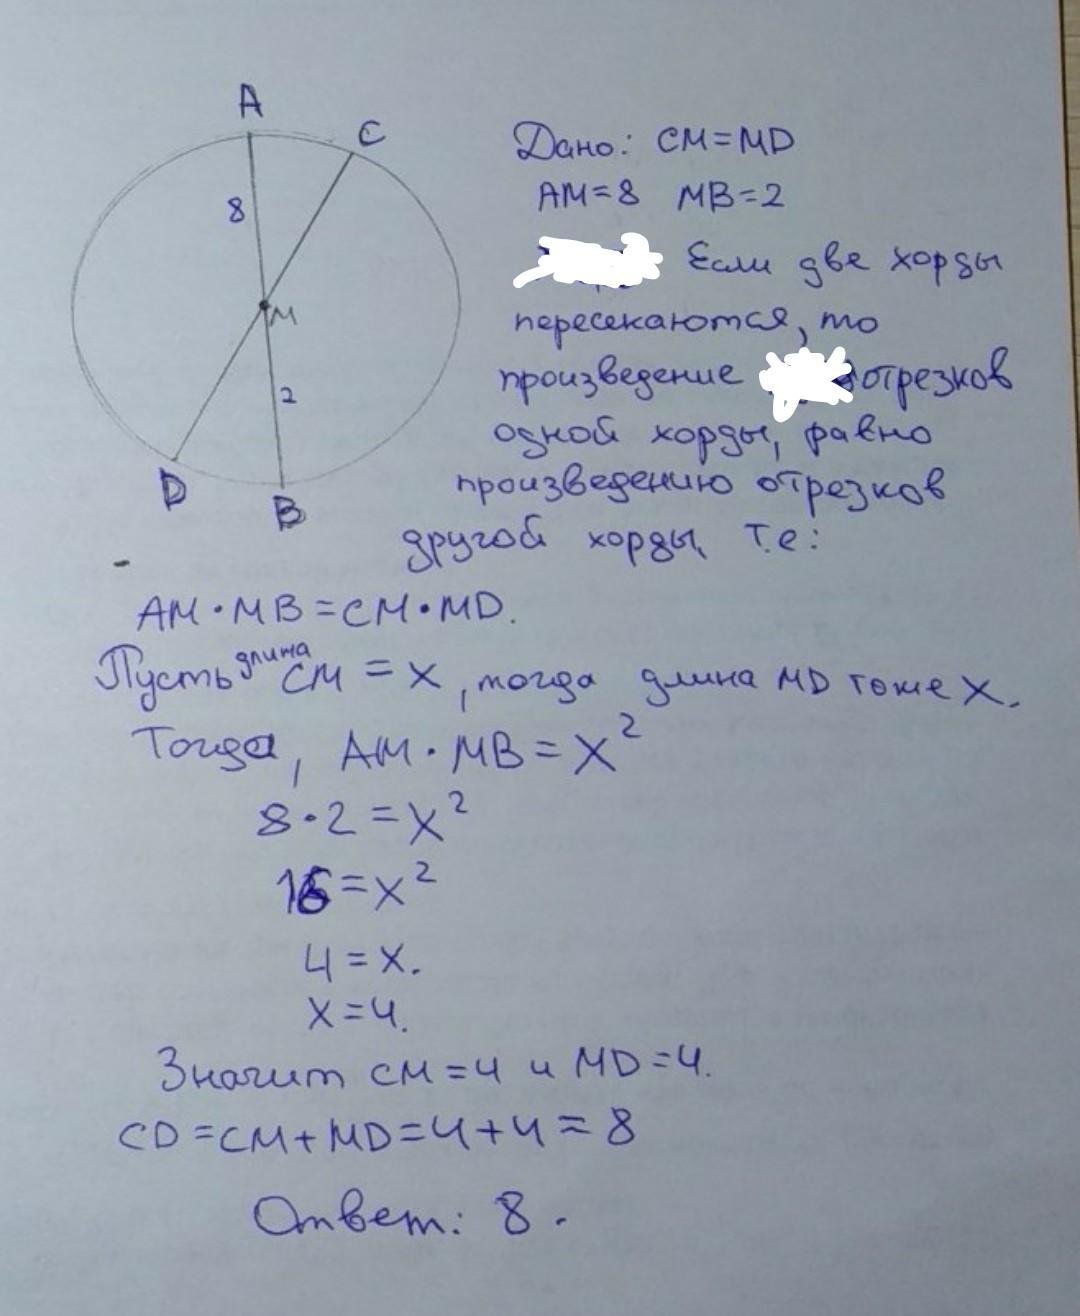 A
C
8
M
2
D
B
Дано: CM=MD
AM=8 MB=2
Если две хорды
пересекаются, то
произведение отрезков
одной хорды, равно
произведению отрезков
другой хорды, т.е:
AM·MB=CM·MD.
Пусть длина CM=x, тогда длина MD тоже x.
Тогда, AM·MB=x²
8·2=x²
16=x²
4=x.
x=4.
Значит CM=4 и MD=4.
CD=CM+MD=4+4=8
Ответ: 8.